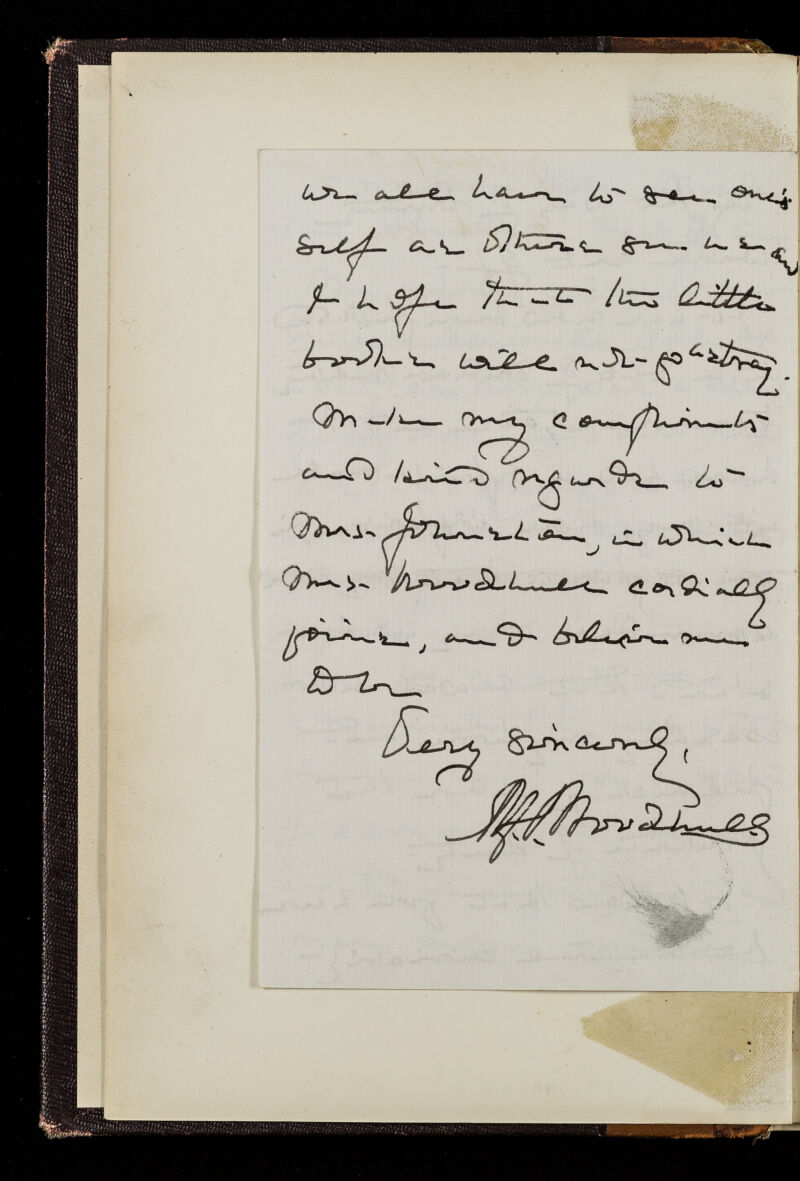 we all have to see one's
self as others see us and
I hope that the little
book will not go astray.
Make my compliments
and kind regards to
Mrs. Johnston, in which
Mrs. Woodhull cordially
joins, and believe me
to be
Very sincerely,
Woodhull